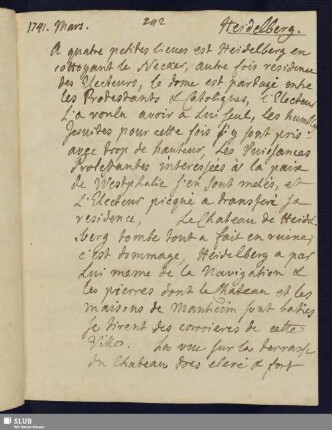 1741. Mars. 242 Heidelberg.
A quatre petites lieues est Heidelberg en
cottoyant le Neczar, autre fois residence
des Electeurs, le dome est partagé entre
les Protestants & Catoliques, l'Electeur
l'a voulu avoir à lui seul, les humbles
Jesuites pour cette fois s'y sont pris
avec trop de hauteur, les Puissances
Protestantes interessées à la paix
de Westphalie s'en sont melés, et
l'Electeur picqué a transferé sa
residence, Le Chateau de Heidel
berg tombe tout a fait en ruine;
c'est dommage, Heidelberg a par
lui meme de la Navigation &
les pierres dont le Chateau et les
maisons de Manheim sont baties
se tirent des carrieres de cette
Ville. La vue sur la terrasse
du Chateau dres elevé & fort
SLUB